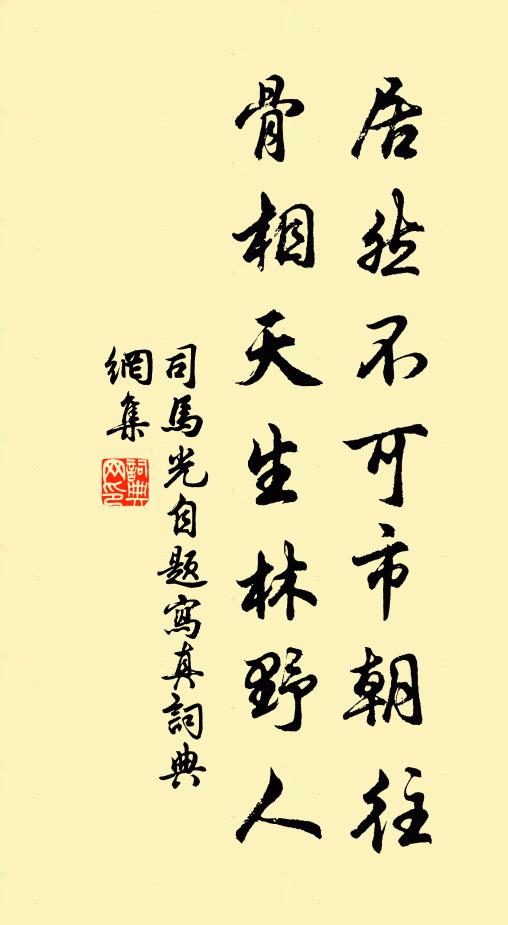 居然不可市朝往
骨相天生林野人
司馬光自題寫真詞典
網集
詞典
网印